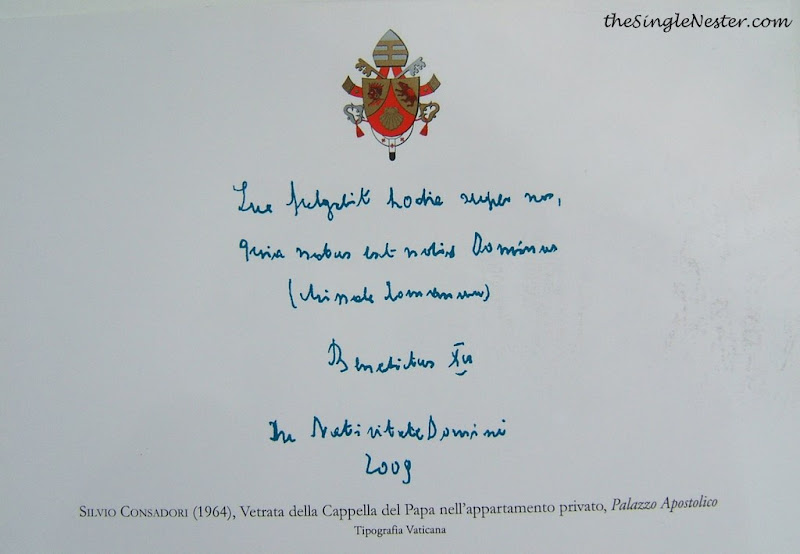 theSingleNester.com
Lux fulgebit hodie super nos,
quia natus est nobis Dominus
(Missale Romanum)
Benedictus XVI
In Nativitate Domini
2009
SILVIO CONSADORI (1964), Vetrata della Cappella del Papa nell'appartamento privato, Palazzo Apostolico
Tipografia Vaticana